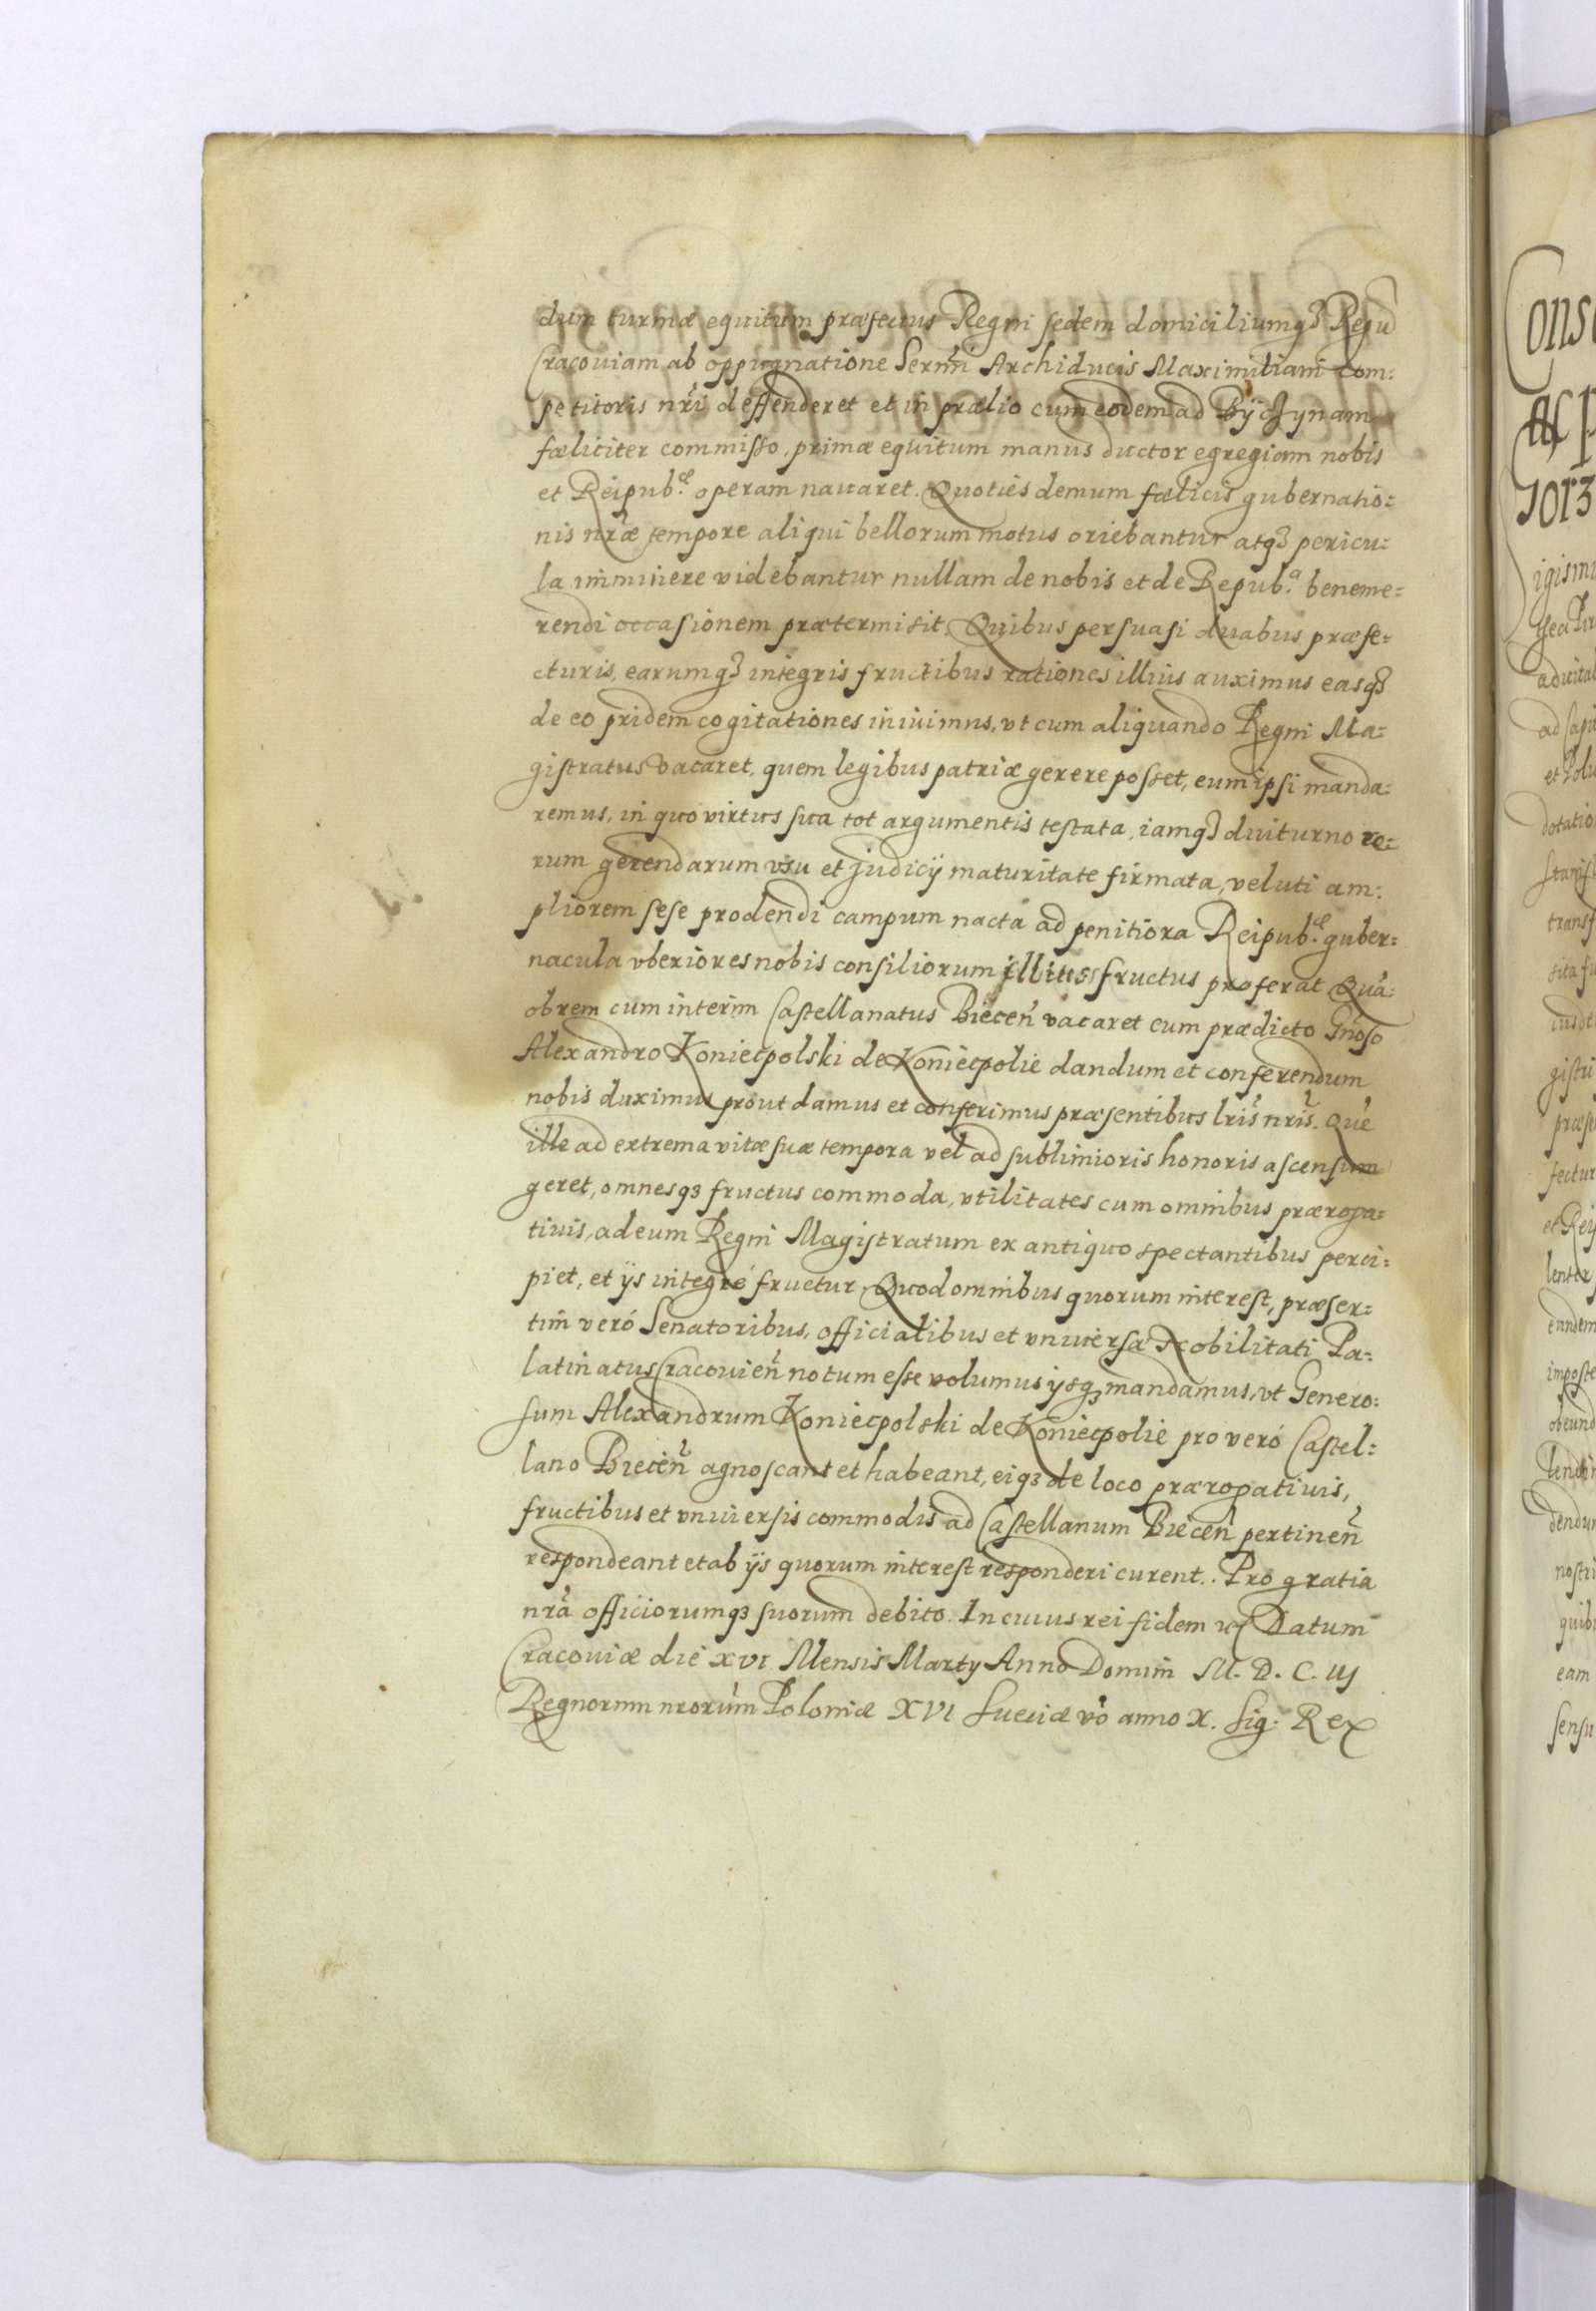 dum turmæ equitum præfectus Regni sedem domiciliumqꝫ Regũ
Cracouiam ab oppugnatione Sermi Archiducis Maximiliani Com:
petitoris nri deffenderet et in prælio cum eodem ad Byczynam
fæliciter commisso, primæ equitum manus ductor egregiam nobis
et Reipub.æ operam nauaret. Quoties demum fælicis gubernatio:
nis nræ tempore aliqui bellorum motus oriebantur atqꝫ pericu:
la imminere videbantur nullam de nobis et de Repub.a beneme:
rendi occasionem prætermisit, Quibus persuasi duabus præfe:
cturis, earumqꝫ integris fructibus rationes illius auximus easqꝫ
de eo pridem cogitationes iniuimus, vt cum aliquando Regni Ma:
gistratus vacaret, quem legibus patriæ gerere posset, eum ipsi manda:
remus, in quo virtus sua tot argumentis testata, iamqꝫ diuturno re:
rum gerendarum vsu et judicij maturitate firmata, veluti am:
pliorem sese prodendi campum nacta ad penitiora Reipub.æ guber:
nacula vberiores nobis consiliorum illius fructus proferat Quã:
obrem cum interim Castellanatus Biecen̄ vacaret eum prædicto Gnoso
Alexandro Koniecpolski de Koniecpolie dandum et conferendum
nobis duximus prout damus et conferimus præsentibus lris nris. Què
ille ad extrema vitæ suæ tempora vel ad sublimioris honoris ascensum
geret, omnesqꝫ fructus commoda, vtilitates cum omnibus præroga:
tiuis, ad eum Regni Magistratum ex antiquo spectantibus perci:
piet, et ijs integrè fruetur, Quod omnibus quorum interest, præser:
tim verò Senatoribus, officialibus et vniuersæ Nobilitati Pa:
latinatus Cracouien̄ notum esse volumus ijsqꝫ mandamus, vt Genero:
sum Alexandrum Koniecpolski de Koniecpolie pro verò Castel:
lano Biecen̄ agnoscant et habeant, eiqꝫ de loco prærogatiuis,
fructibus et vniuersis commodis ad Castellanum Biecen̄ pertinen̄
respondeant et ab ijs quorum interest responderi curent.. Pro gratia
nra officiorumqꝫ suorum debito. In cuius rei fidem Datum
Cracouiæ die XVI. Mensis Martij Anno Domini M. D. C. IIJ
Regnorum nrorum Poloniæ XVI Sueciæ vò anno X. Sig: Rex